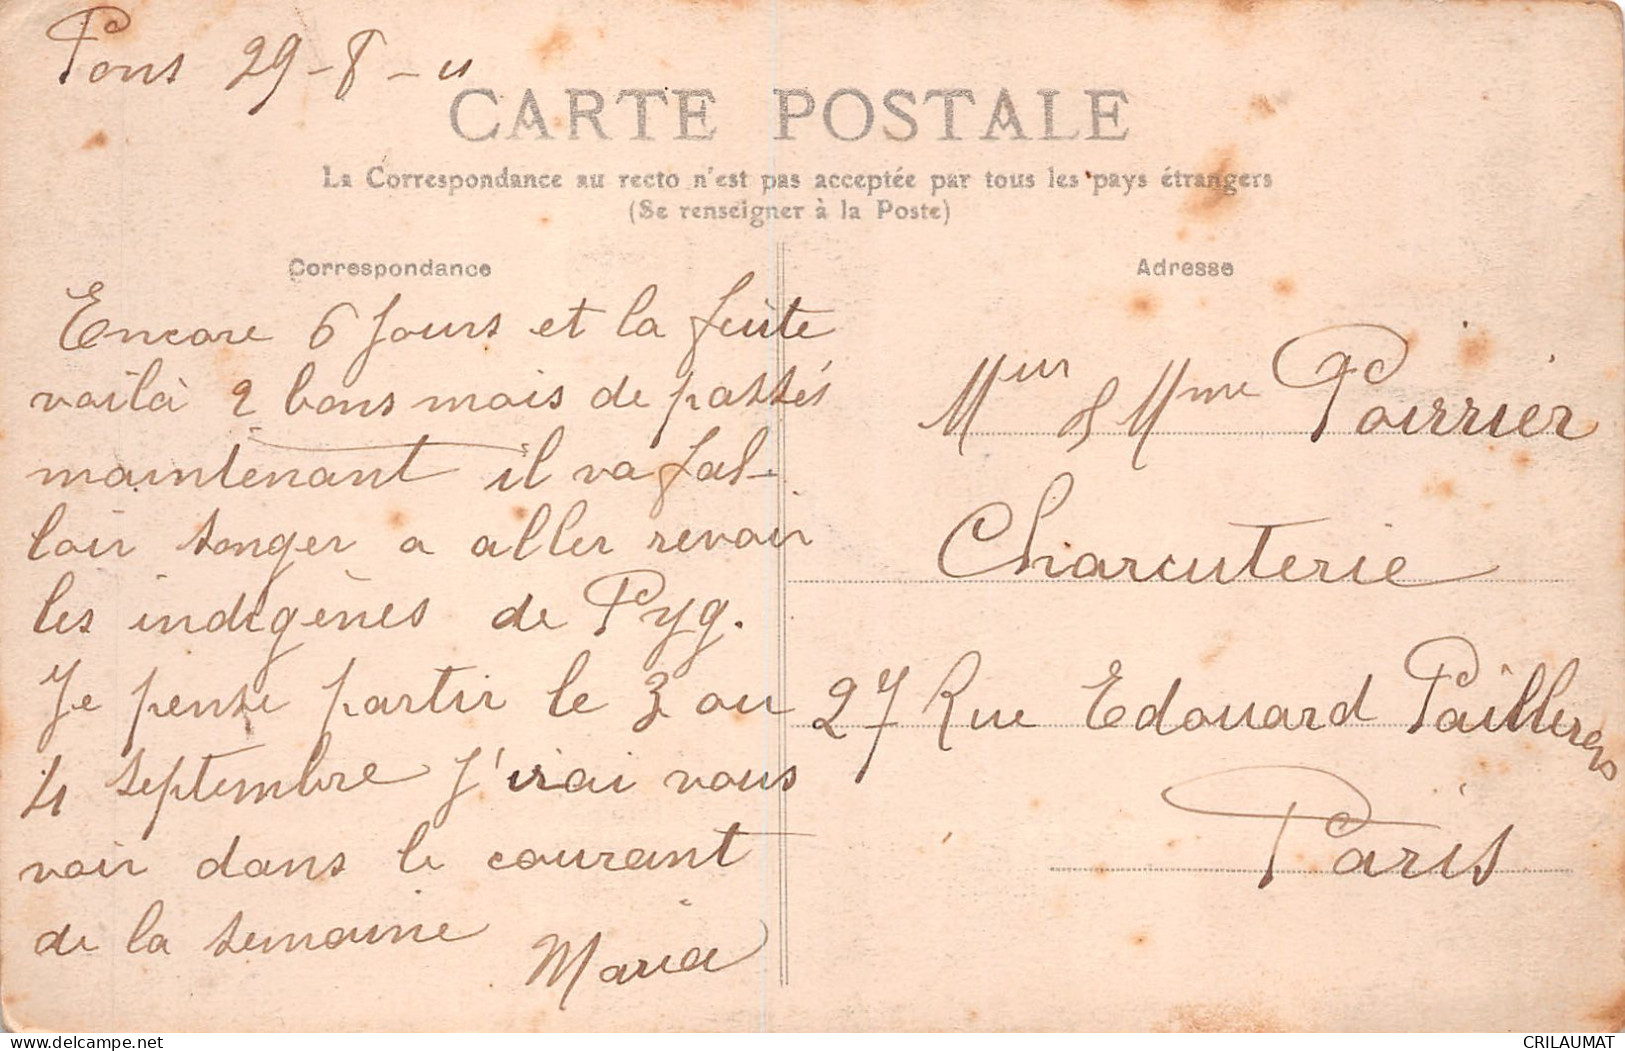 Pons 29-8-11
CARTE POSTALE
La Correspondance au recto n'est pas acceptée par tous les pays étrangers
(Se renseigner à la Poste)
Correspondance
Encore 6 jours et la fuite
voilà 2 bons mois de passés
maintenant il va fal-
loir songer a aller revoir
les indigènes de Pyg.
Je pense partir le 3 ou
4 septembre J'irai vous
voir dans le courant
de la semaine
Maria
Adresse
Mur & Mme Poirrier
Charcuterie
27 Rue Edouard Pailleron
Paris
CRILAUMAT